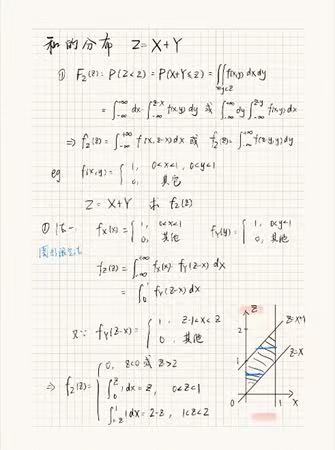 和的分布 Z=X+Y
① F_Z(z)=P(Z≤z)=P(X+Y≤z)=∬_{x+y≤z} f(x,y)dxdy
=∫_{-∞}^{+∞}dx∫_{-∞}^{z-x}f(x,y)dy 或 ∫_{-∞}^{+∞}dy∫_{-∞}^{z-y}f(x,y)dx
⇒ f_Z(z)=∫_{-∞}^{+∞}f(x,z-x)dx 或 f_Z(z)=∫_{-∞}^{+∞}f(z-y,y)dy
eg f(x,y)={1, 0<x<1, 0<y<1
0, 其它
Z=X+Y 求 f_Z(z)
① 法一 f_X(x)={1, 0<x<1 f_Y(y)={1, 0<y<1
0, 其他 0, 其他
f_Z(z)=∫_{-∞}^{+∞}f_X(x)·f_Y(z-x)dx
=∫_0^1 f_Y(z-x)dx
又∵ f_Y(z-x)={1, z-1<x<z
0, 其他
⇒ f_Z(z)={0, z<0 或 z>2
∫_0^z 1dx=z, 0<z<1
∫_{z-1}^1 1dx=2-z, 1<z<2
z
2
z=x+1
1
z=x
0 1 x